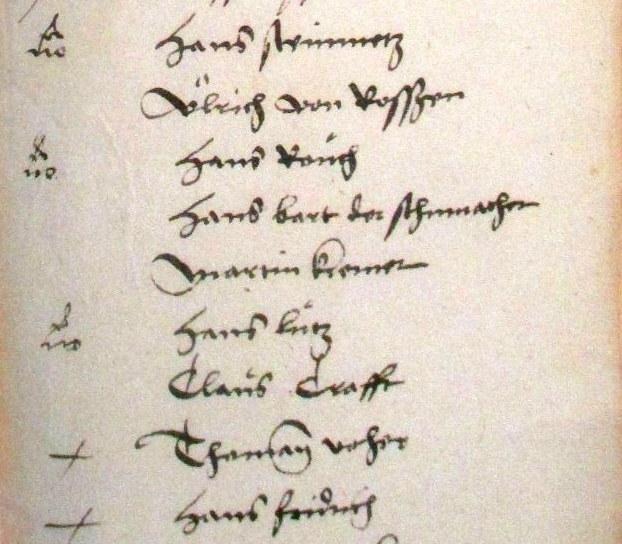 Hans steinmetz
Ulrich von Rosszen
Hans Rouch
Hans bart der schumacher
Martin kremer
Hans lutz
Claus Crafft
Thoman
Hans fridrich